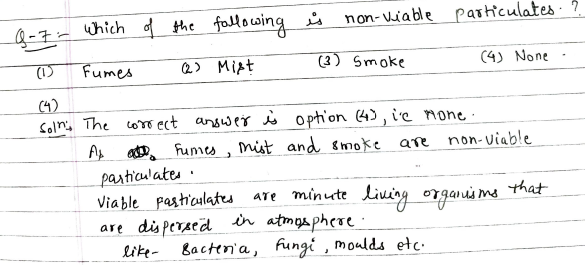 Q-7:- Which of the following is non-viable particulates. ?
(1) Fumes (2) Mist (3) Smoke (4) None.
(4)
Soln:- The correct answer is option (4), i.e None.
As Fumes, mist and smoke are non-viable
particulates.
Viable particulates are minute living organisms that
are dispersed in atmosphere.
like- Bacteria, Fungi, moulds etc.